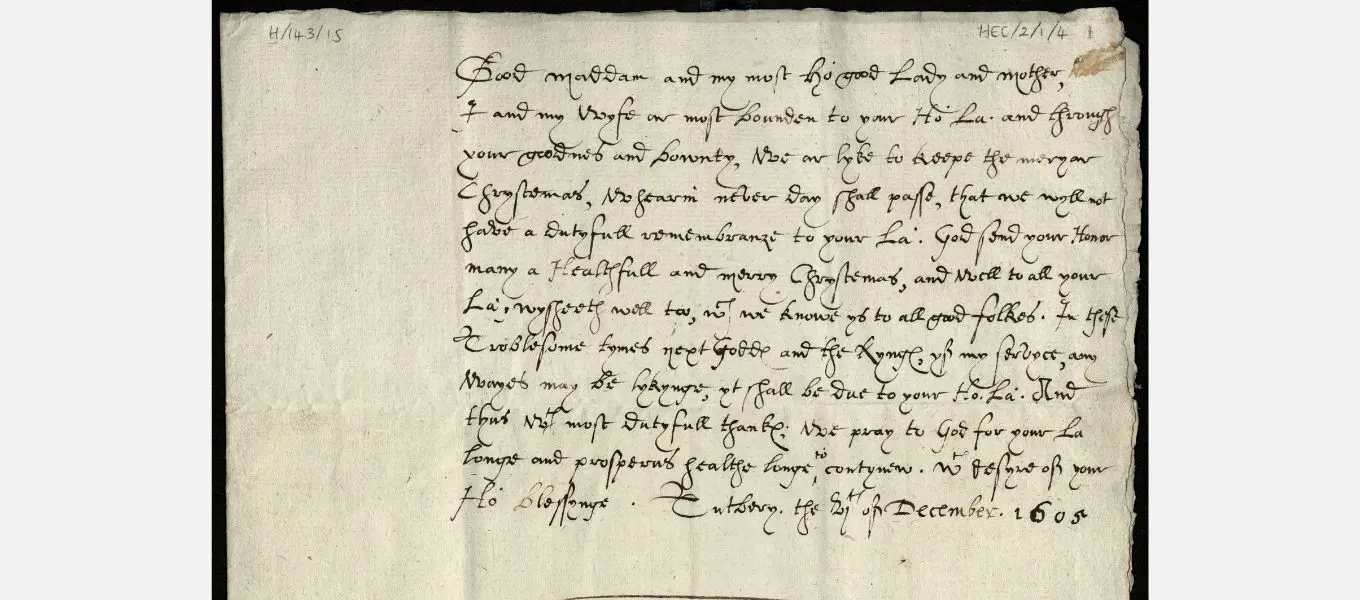 H/143/15
HEC/2/1/4 1
Good maddam and my most Ho: good Lady and mother,
I and my Wyfe ar most bounden to your Ho: La. and through
your goodnes and bownty, We ar lyke to keepe the meryar
Chrystemas, Whearin never day shall passe, that we wyll not
have a dutyfull remembranze to your La. God send your Honor
many a Healthfull and merry Chrystemas, and Well to all your
La: wysheeth well too, wch we knowe ys to all good folkes. In these
Troblesome tymes next Godd and the Kyng, yff my servyce, any
Wayes may be lykynge, yt shall be due to your Ho. La. And
thus Wth most dutyfull thank; We pray to God for your La
longe and prosperus healthe longe to contynew. Wt desyre off your
Ho: blessynge. Tutbery. the Vjth off December. 1605